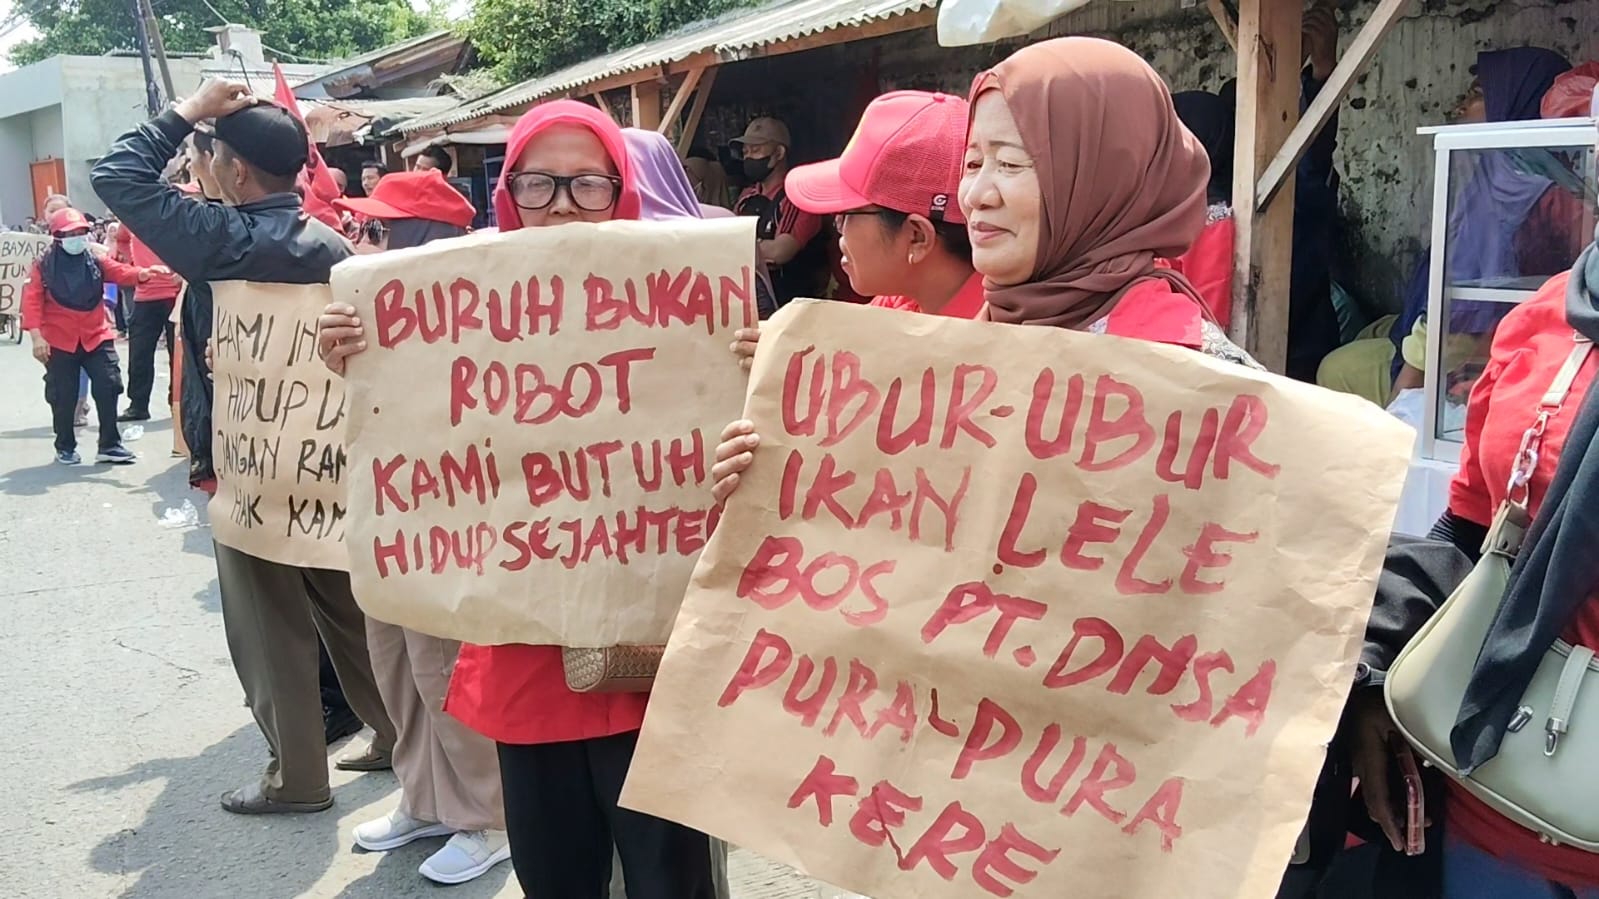 BAYAR
KAMI
HIDUP
JANGAN
HAK
BURUH BUKAN
ROBOT
KAMI BUTUH
HIDUP SEJAHTE
UBUR-UBUR
IKAN LELE
BOS PT. DMSA
PURA-PURA
KERE